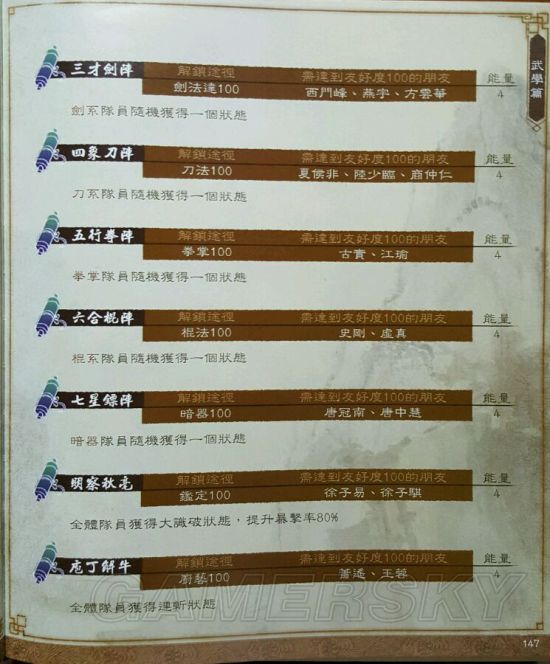 武學篇
三才劍陣 解鎖途徑 需達到友好度100的朋友 能量
劍法達100 西門峰、燕宇、方雲華 4
劍系隊員隨機獲得一個狀態
四象刀陣 解鎖途徑 需達到友好度100的朋友 能量
刀法100 夏侯非、陸少臨、商仲仁 4
刀系隊員隨機獲得一個狀態
五行拳陣 解鎖途徑 需達到友好度100的朋友 能量
拳掌100 古實、江瑜 4
拳掌隊員隨機獲得一個狀態
六合棍陣 解鎖途徑 需達到友好度100的朋友 能量
棍法100 史剛、虛真 4
棍系隊員隨機獲得一個狀態
七星鏢陣 解鎖途徑 需達到友好度100的朋友 能量
暗器100 唐冠南、唐中慧 4
暗器隊員隨機獲得一個狀態
明察秋毫 解鎖途徑 需達到友好度100的朋友 能量
鑑定100 徐子易、徐子騏 4
全體隊員獲得大識破狀態，提升暴擊率80%
庖丁解牛 解鎖途徑 需達到友好度100的朋友 能量
廚藝100 蕭遙、王蓉 4
全體隊員獲得連斬狀態
GAMERSKY
147